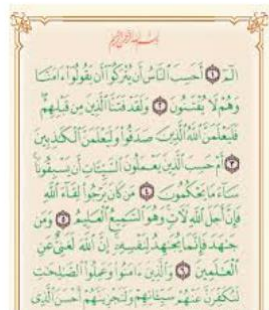 بسم الله الرحمن الرحيم
الٓمٓ ١ أَحَسِبَ ٱلنَّاسُ أَن يُتْرَكُوٓا۟ أَن يَقُولُوٓا۟ ءَامَنَّا
وَهُمْ لَا يُفْتَنُونَ ٢ وَلَقَدْ فَتَنَّا ٱلَّذِينَ مِن قَبْلِهِمْ
فَلَيَعْلَمَنَّ ٱللَّهُ ٱلَّذِينَ صَدَقُوا۟ وَلَيَعْلَمَنَّ ٱلْكَٰذِبِينَ
٣ أَمْ حَسِبَ ٱلَّذِينَ يَعْمَلُونَ ٱلسَّيِّـَٔاتِ أَن يَسْبِقُونَا
سَآءَ مَا يَحْكُمُونَ ٤ مَن كَانَ يَرْجُوا۟ لِقَآءَ ٱللَّهِ
فَإِنَّ أَجَلَ ٱللَّهِ لَـَٔاتٍ وَهُوَ ٱلسَّمِيعُ ٱلْعَلِيمُ ٥ وَمَن
جَٰهَدَ فَإِنَّمَا يُجَٰهِدُ لِنَفْسِهِۦٓ إِنَّ ٱللَّهَ لَغَنِىٌّ عَنِ
ٱلْعَٰلَمِينَ ٦ وَٱلَّذِينَ ءَامَنُوا۟ وَعَمِلُوا۟ ٱلصَّٰلِحَٰتِ
لَنُكَفِّرَنَّ عَنْهُمْ سَيِّـَٔاتِهِمْ وَلَنَجْزِيَنَّهُمْ أَحْسَنَ ٱلَّذِى